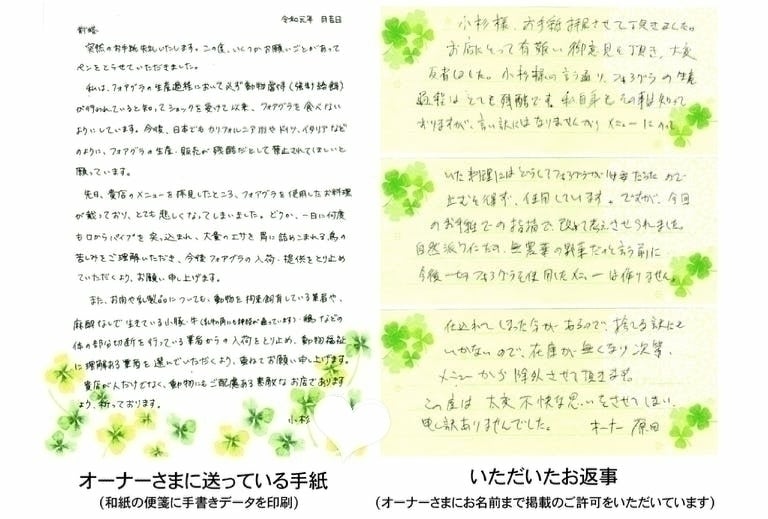 令和元年 月吉日
前略
突然のお手紙失礼いたします。この度、いくつかお願いごとがあって
ペンをとらせていただきました。
私は、フォアグラの生産過程において必ず動物虐待(強制給餌)
が行われていると知ってショックを受けて以来、フォアグラを食べない
ようにしています。今後、日本でもカリフォルニア州やドイツ、イタリアなど
のように、フォアグラの生産・販売が残酷だとして禁止されてほしいと
願っています。
先日、貴店のメニューを拝見したところ、フォアグラを使用したお料理
が載っており、とても悲しくなってしまいました。どうか、一日に何度
も口からパイプを突っ込まれ、大量のエサを胃に詰めこまれる鳥の
苦しみをご理解いただき、今後フォアグラの入荷・提供をとり止め
ていただくよう、お願い申し上げます。
また、お肉や乳製品についても、動物を拘束飼育している業者や、
麻酔なしで生きている小豚・牛(乳や角にも神経が通っています)・鶏などの
体の部分切断を行っている業者からの入荷をとり止め、動物福祉
に理解ある業者を選んでいただくよう、重ねてお願い申し上げます。
貴店が人だけでなく、動物にもご配慮ある素敵なお店であります
よう、祈っております。
小杉
オーナーさまに送っている手紙
(和紙の便箋に手書きデータを印刷)
小杉様、お手紙拝見させて頂きました。
お店にとって有難い御意見を頂き、大変
反省しました。小杉様の言う通り、フォアグラの生産
過程はとても残酷です。私自身もその事は知って
おりますが、言い訳にはなりませんが、メニューにのって
いた料理にはどうしてもフォアグラが必要だったので
止むを得ず、使用しています。ですが、今回
のお手紙での指摘で、改めて考えさせられました。
自然派ワインだの、無農薬の野菜だのと言う前に
今後一切フォアグラを使用したメニューは作りません。
仕込れてしまった分があるので、捨てる訳にも
いかないので、在庫が無くなり次第、
メニューから除外させて頂きます。
この度は大変不快な思いをさせてしまい、
申し訳ありませんでした。 オーナー 原田
いただいたお返事
(オーナーさまにお名前まで掲載のご許可をいただいています)